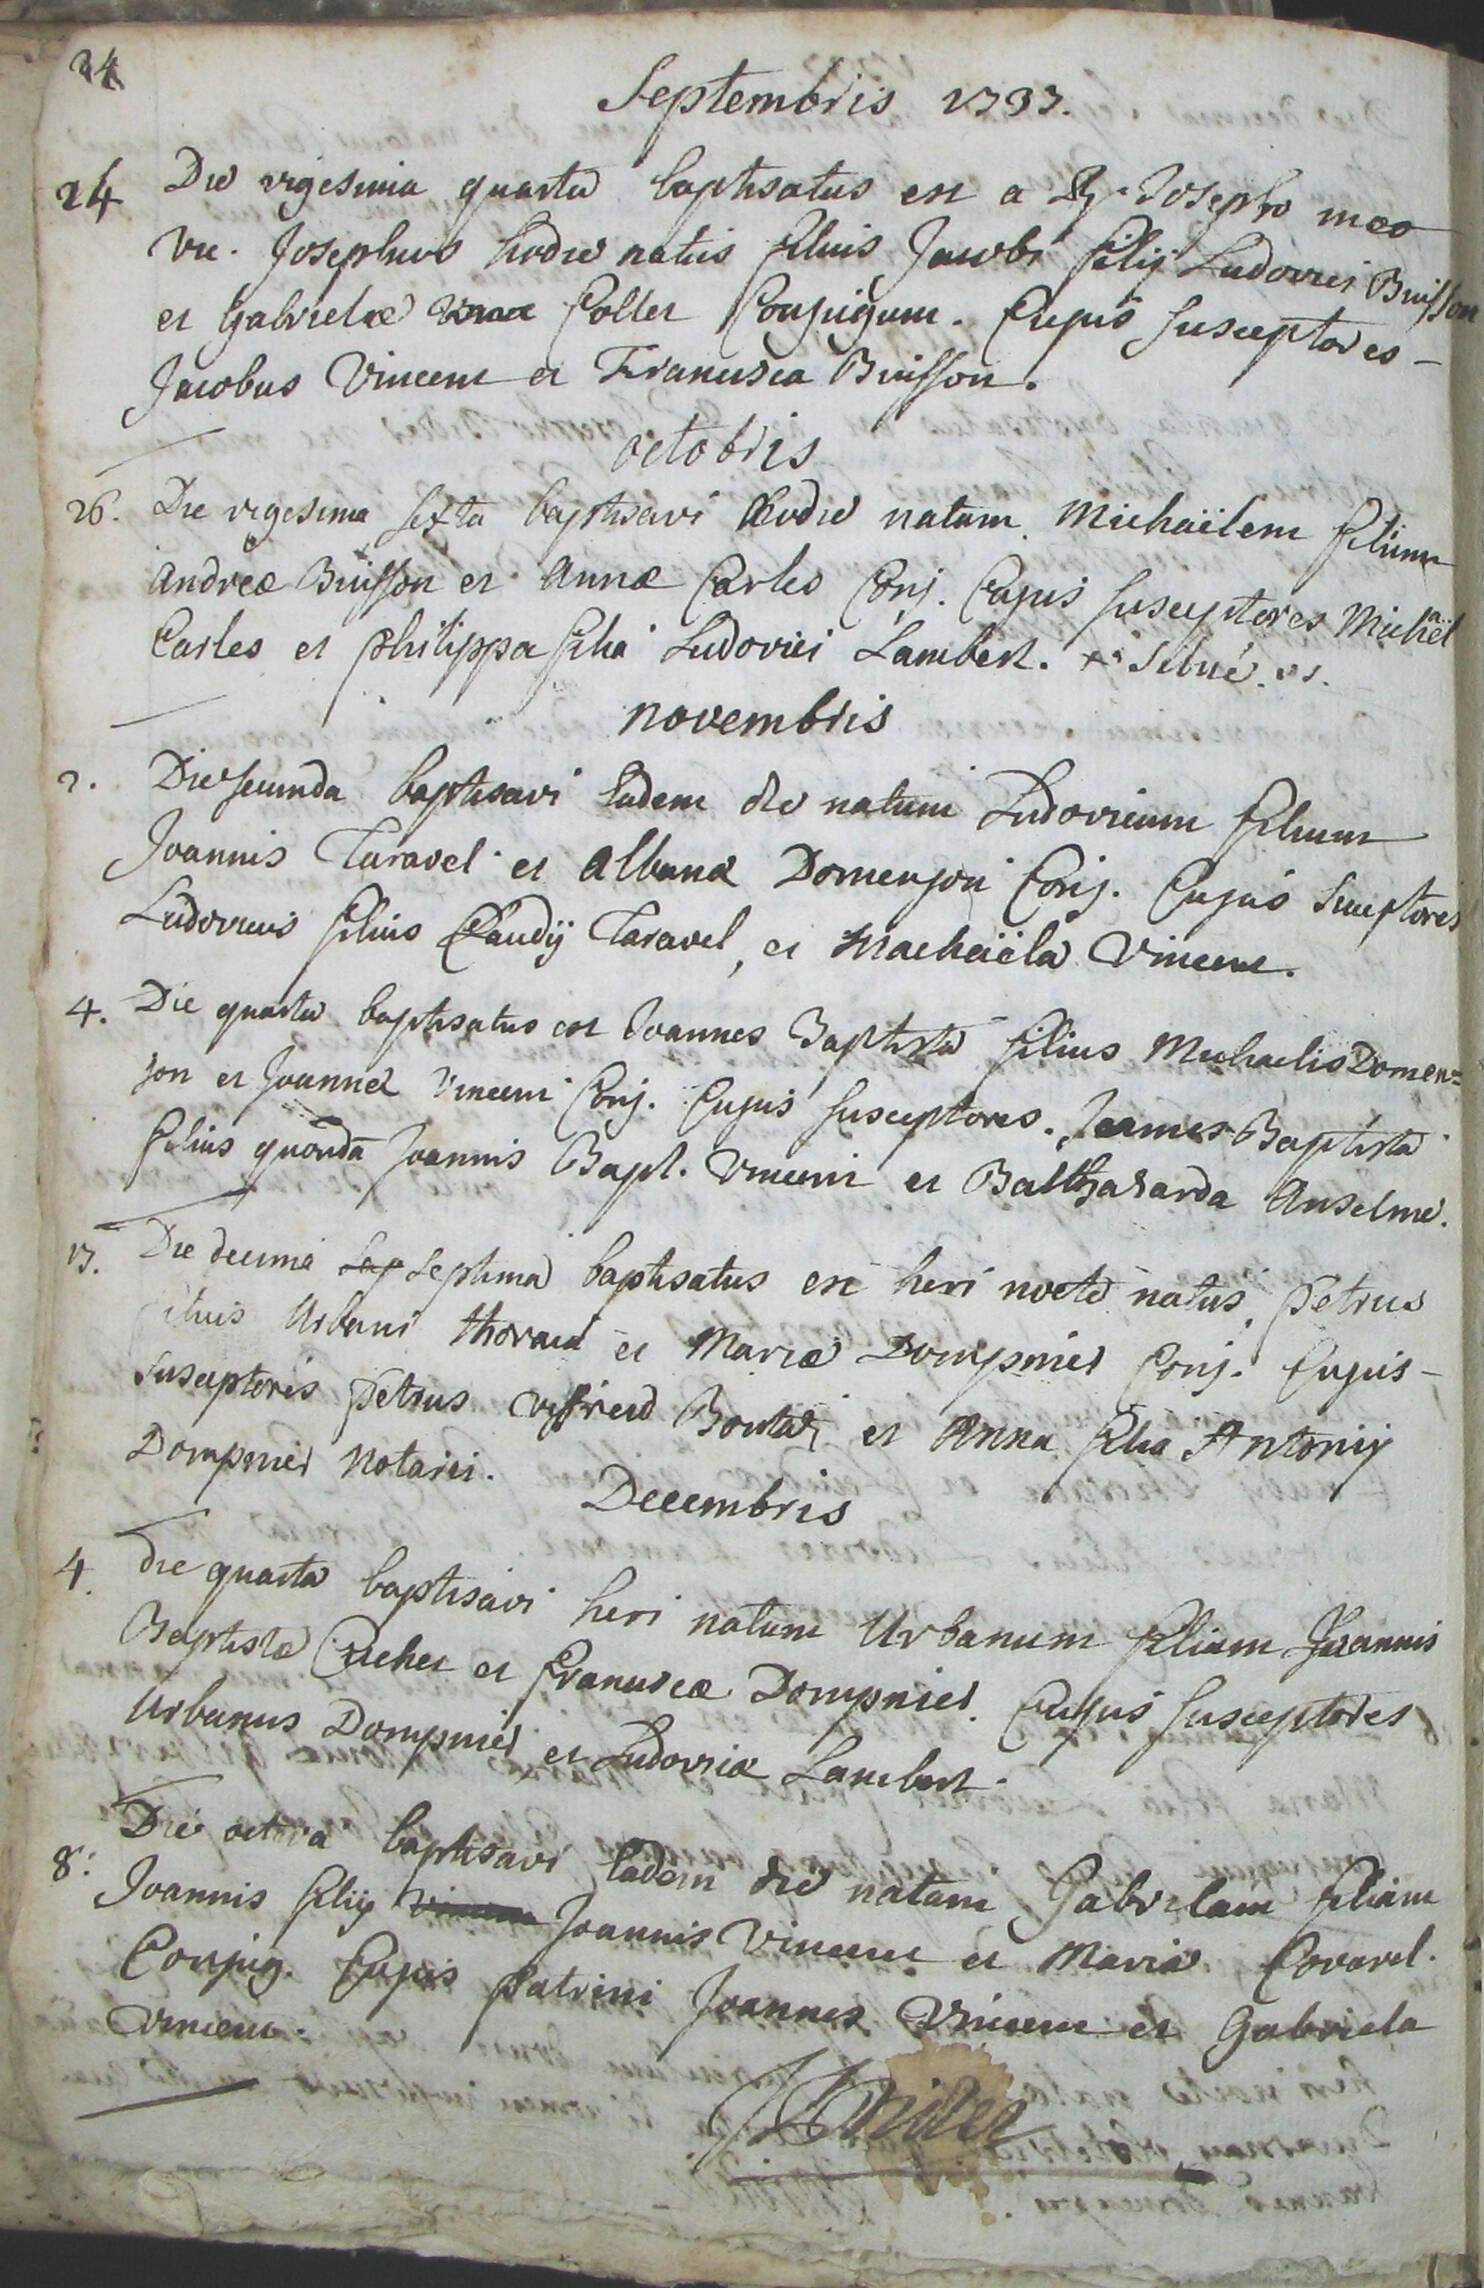 24
Septembris 1737.
24 Die vigesima quarta baptisatus est a Josepho meo
vic. Josephus hodie natus filius Jacobi filij Ludovici Buisson
et Gabrielæ Collet Conjugum. Cujus susceptores –
Jacobus Vincent et Francisca Buisson.
octobris
26. Die vigesima sexta baptisavi hodie natum Michaëlem filium
Andreæ Buisson et Annæ Carles Conj. Cujus susceptores Michaël
Carles et philippa filia Ludovici Lambert.
novembris
2. Die secunda baptisavi Eadem die natum Ludovicum filium
Joannis Taravel et Albanæ Domenjon Conj. Cujus Suceptores
Ludovicus filius Claudij Taravel, et Machaëla Vincent.
4. Die quarta baptisatus est Joannes Baptista filius Michaelis Domen=
jon et Joannæ Vincent Conj. Cujus susceptores. Joannes Baptista
filius quondã Joannis Bapt. Vincent et Balthasarda Anselme.
17. Die decima sep septima baptisatus est heri nocte natus, petrus
filius Urbani thoraud et Mariæ Dompnier Conj. Cujus –
susceptores petrus et Anna filia Antonij
Dompnier Notarii.
Decembris
4. die quarta baptisavi heri natum Urbanum filium Joannis
Baptistæ Crelier et Franciscæ Dompnier. Cujus susceptores
Urbanus Dompnier et Ludovica Lambert.
8. Die octava baptisavi Eadem die natam Gabrielam filiam
Joannis filij Vincent Joannis Vincent et Maria Coravel.
Conjug. Cujus patrini Joannes Vincent et Gabriela
Vincent.